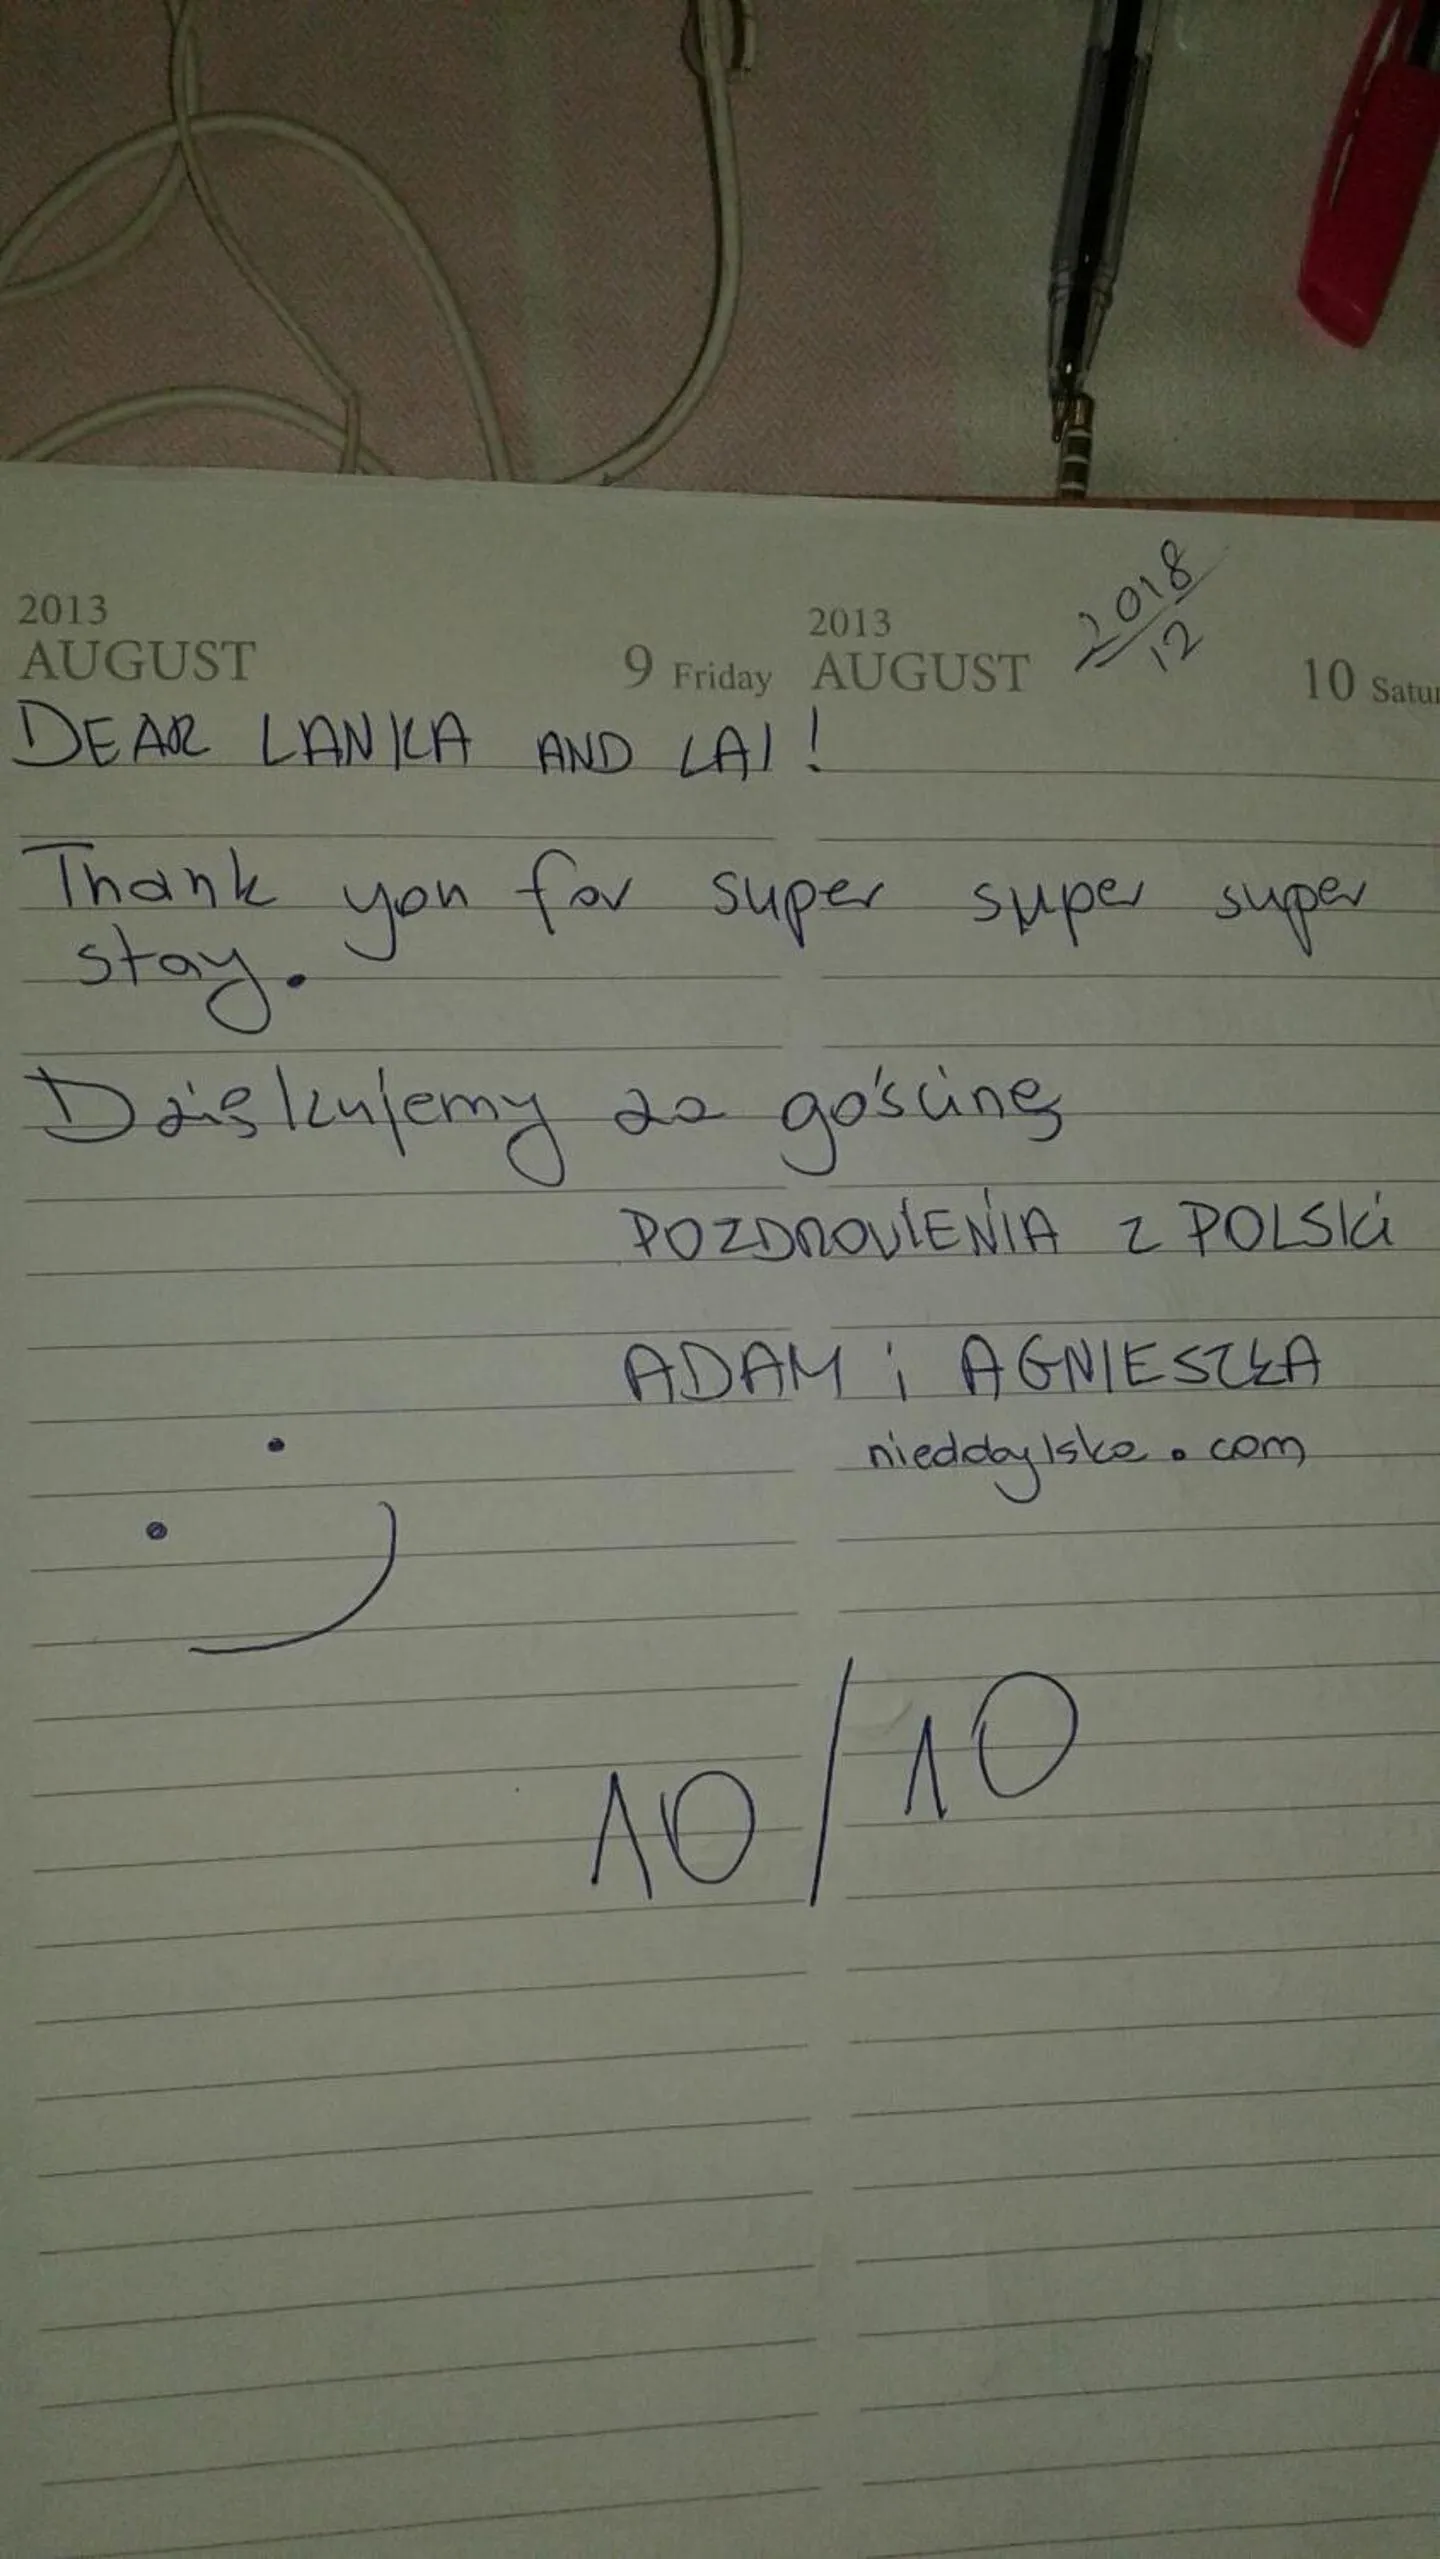 2013
AUGUST 9 Friday
2013
AUGUST 10 Satur
2018/12
DEAR LANKA AND LAI!
Thank you for super super super
stay.
Dziękujemy za gościnę
POZDROWIENIA Z POLSKI
ADAM i AGNIESZKA
10/10